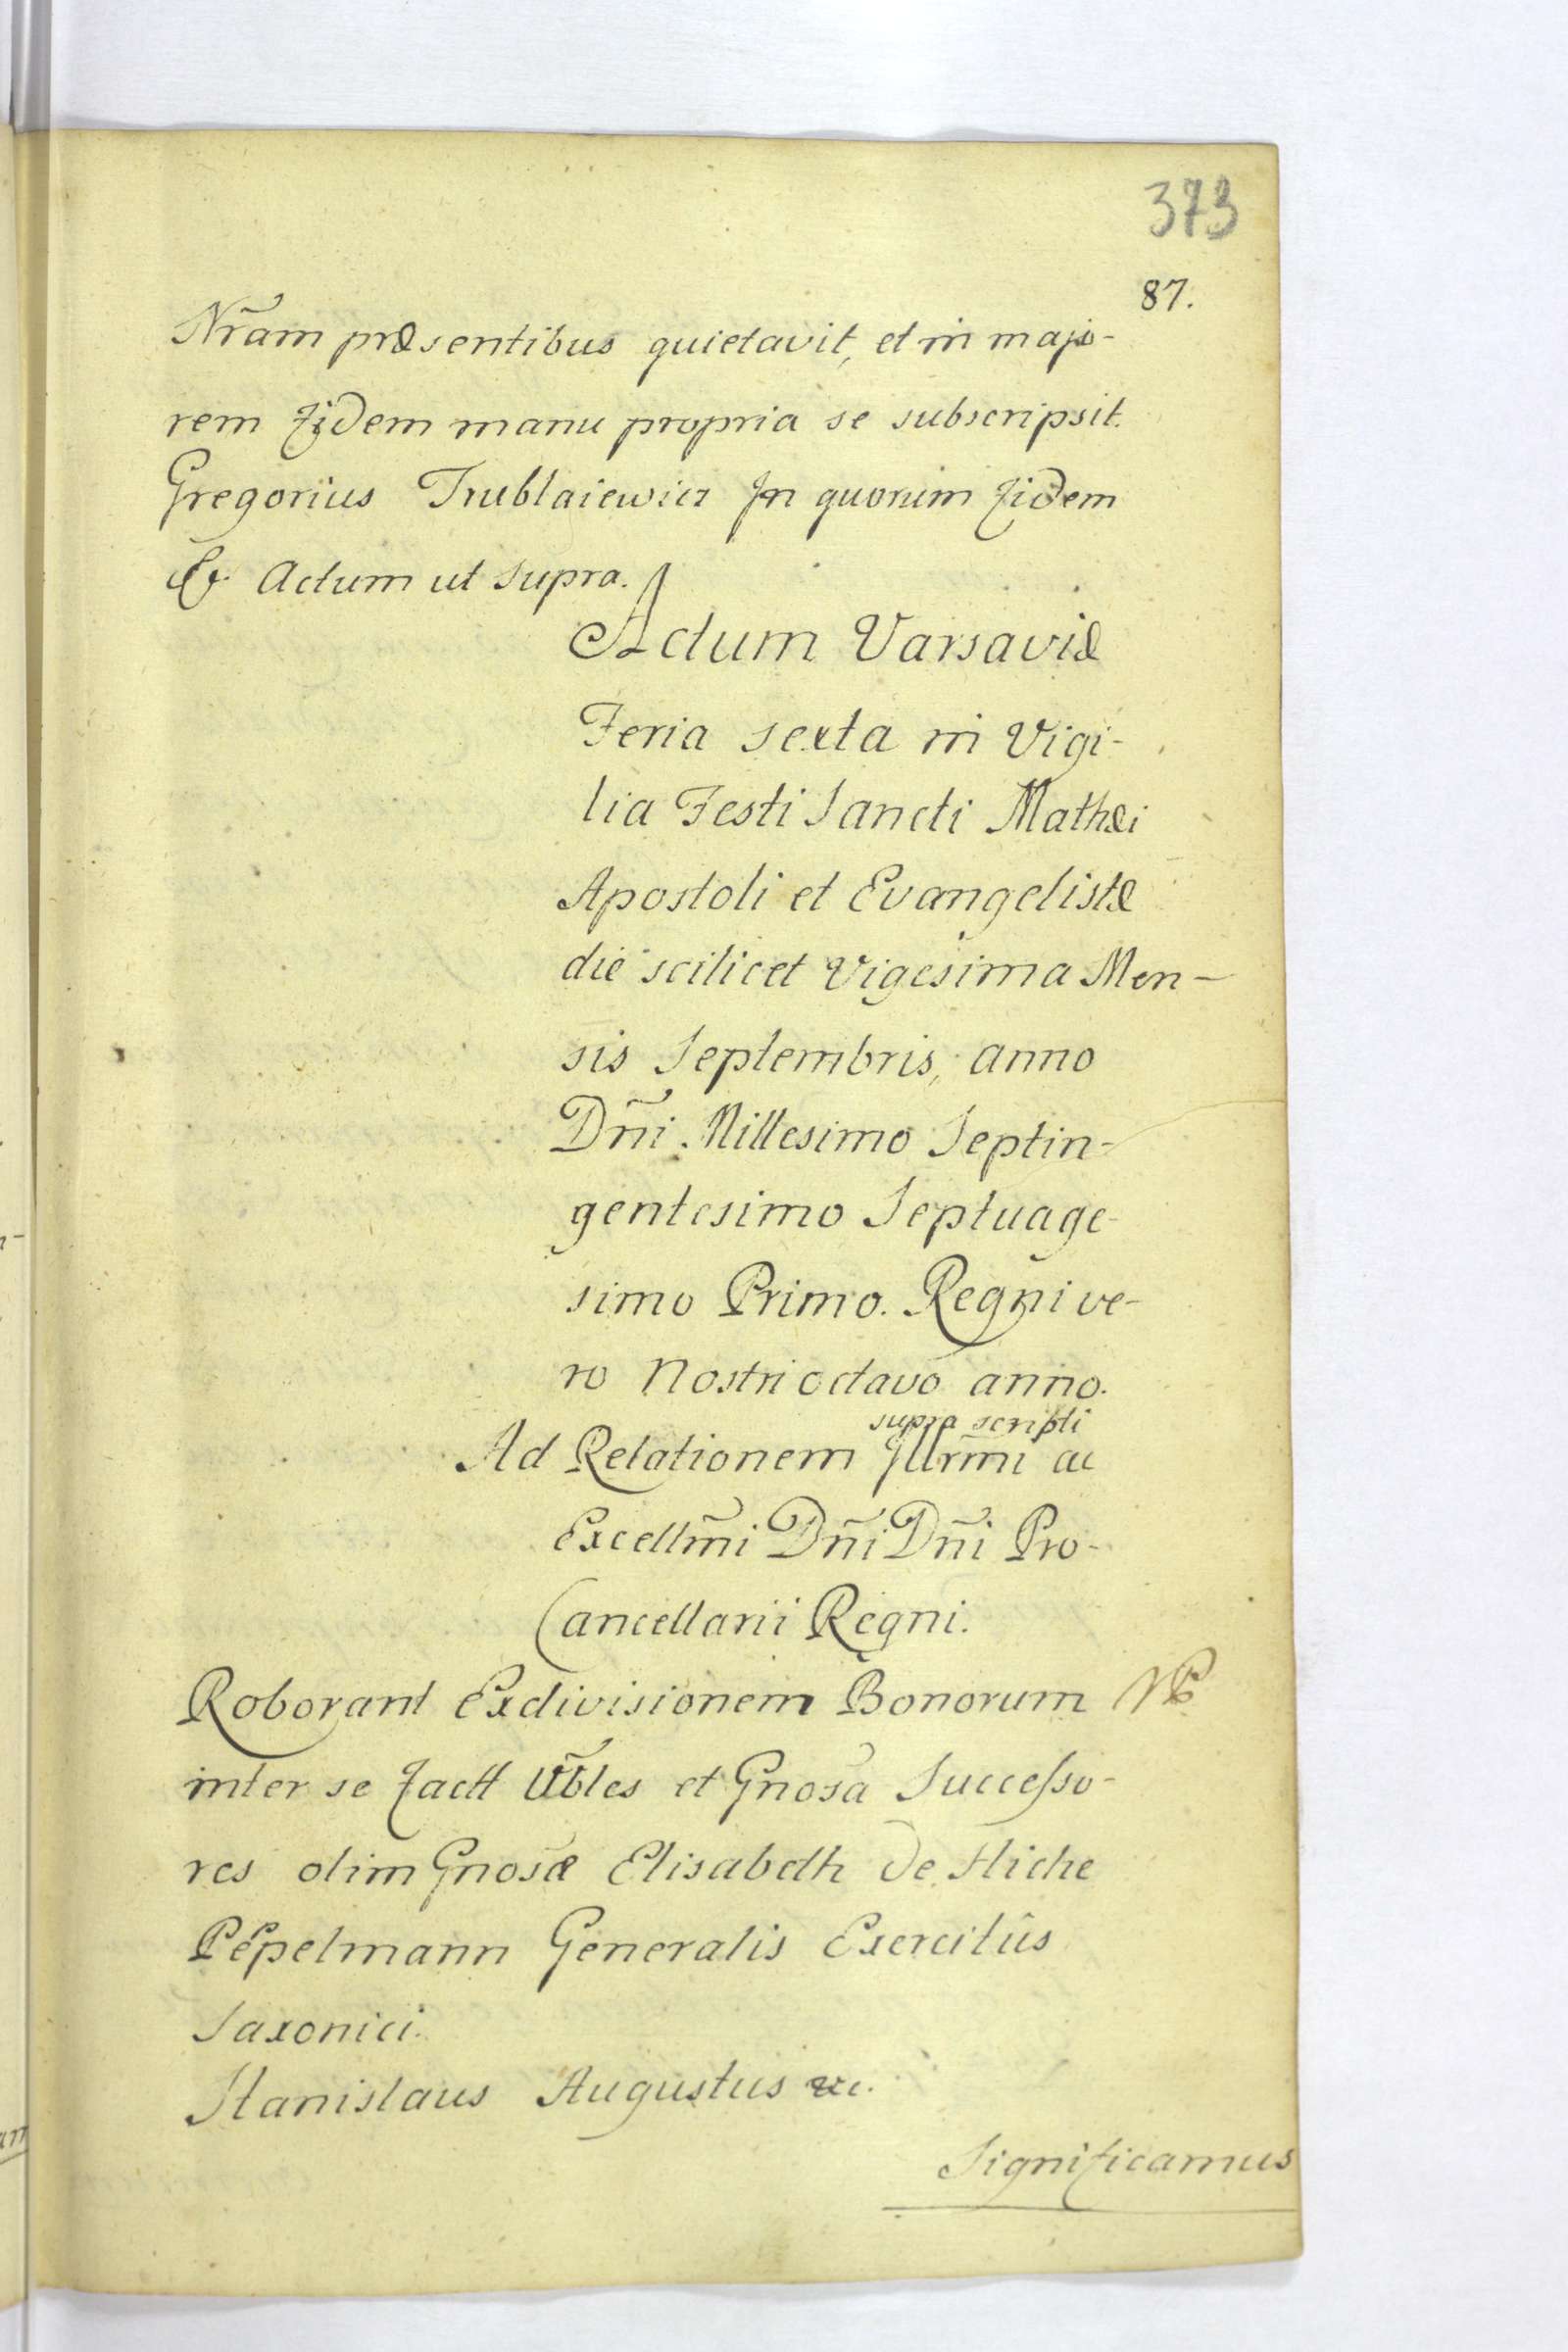 373
87.
Nr̃am præsentibus quietavit, et in majo-
rem fidem manu propria se subscripsit.
Gregorius Trublaiewicz In quorum fidem
&c Actum ut supra.
Actum Varsaviæ
Feria sexta in Vigi-
lia Festi Sancti Mathæi
Apostoli et Evangelistæ
die scilicet Vigesima Men-
sis Septembris, anno
Dñi Millesimo Septin-
gentesimo Septuage-
simo Primo. Regni ve-
ro Nostri octavo anno.
supra scripti
Ad Relationem Illrm̃i ac
Excellm̃i Dñi Dñi Pro-
Cancellarii Regni.
Roborant Exdivisionem Bonorum NB
inter se fact Ge͠n
res olim Gnosæ Elisabeth De Hiche
Pepelmann Generalis Exercitûs
Saxonici.
Stanislaus Augustus &c.
Significamus